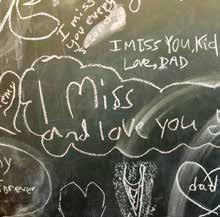 I miss
you every
second
I MISS YOU, Kid
LOVE, DAD
I Miss
and love you
forever
day